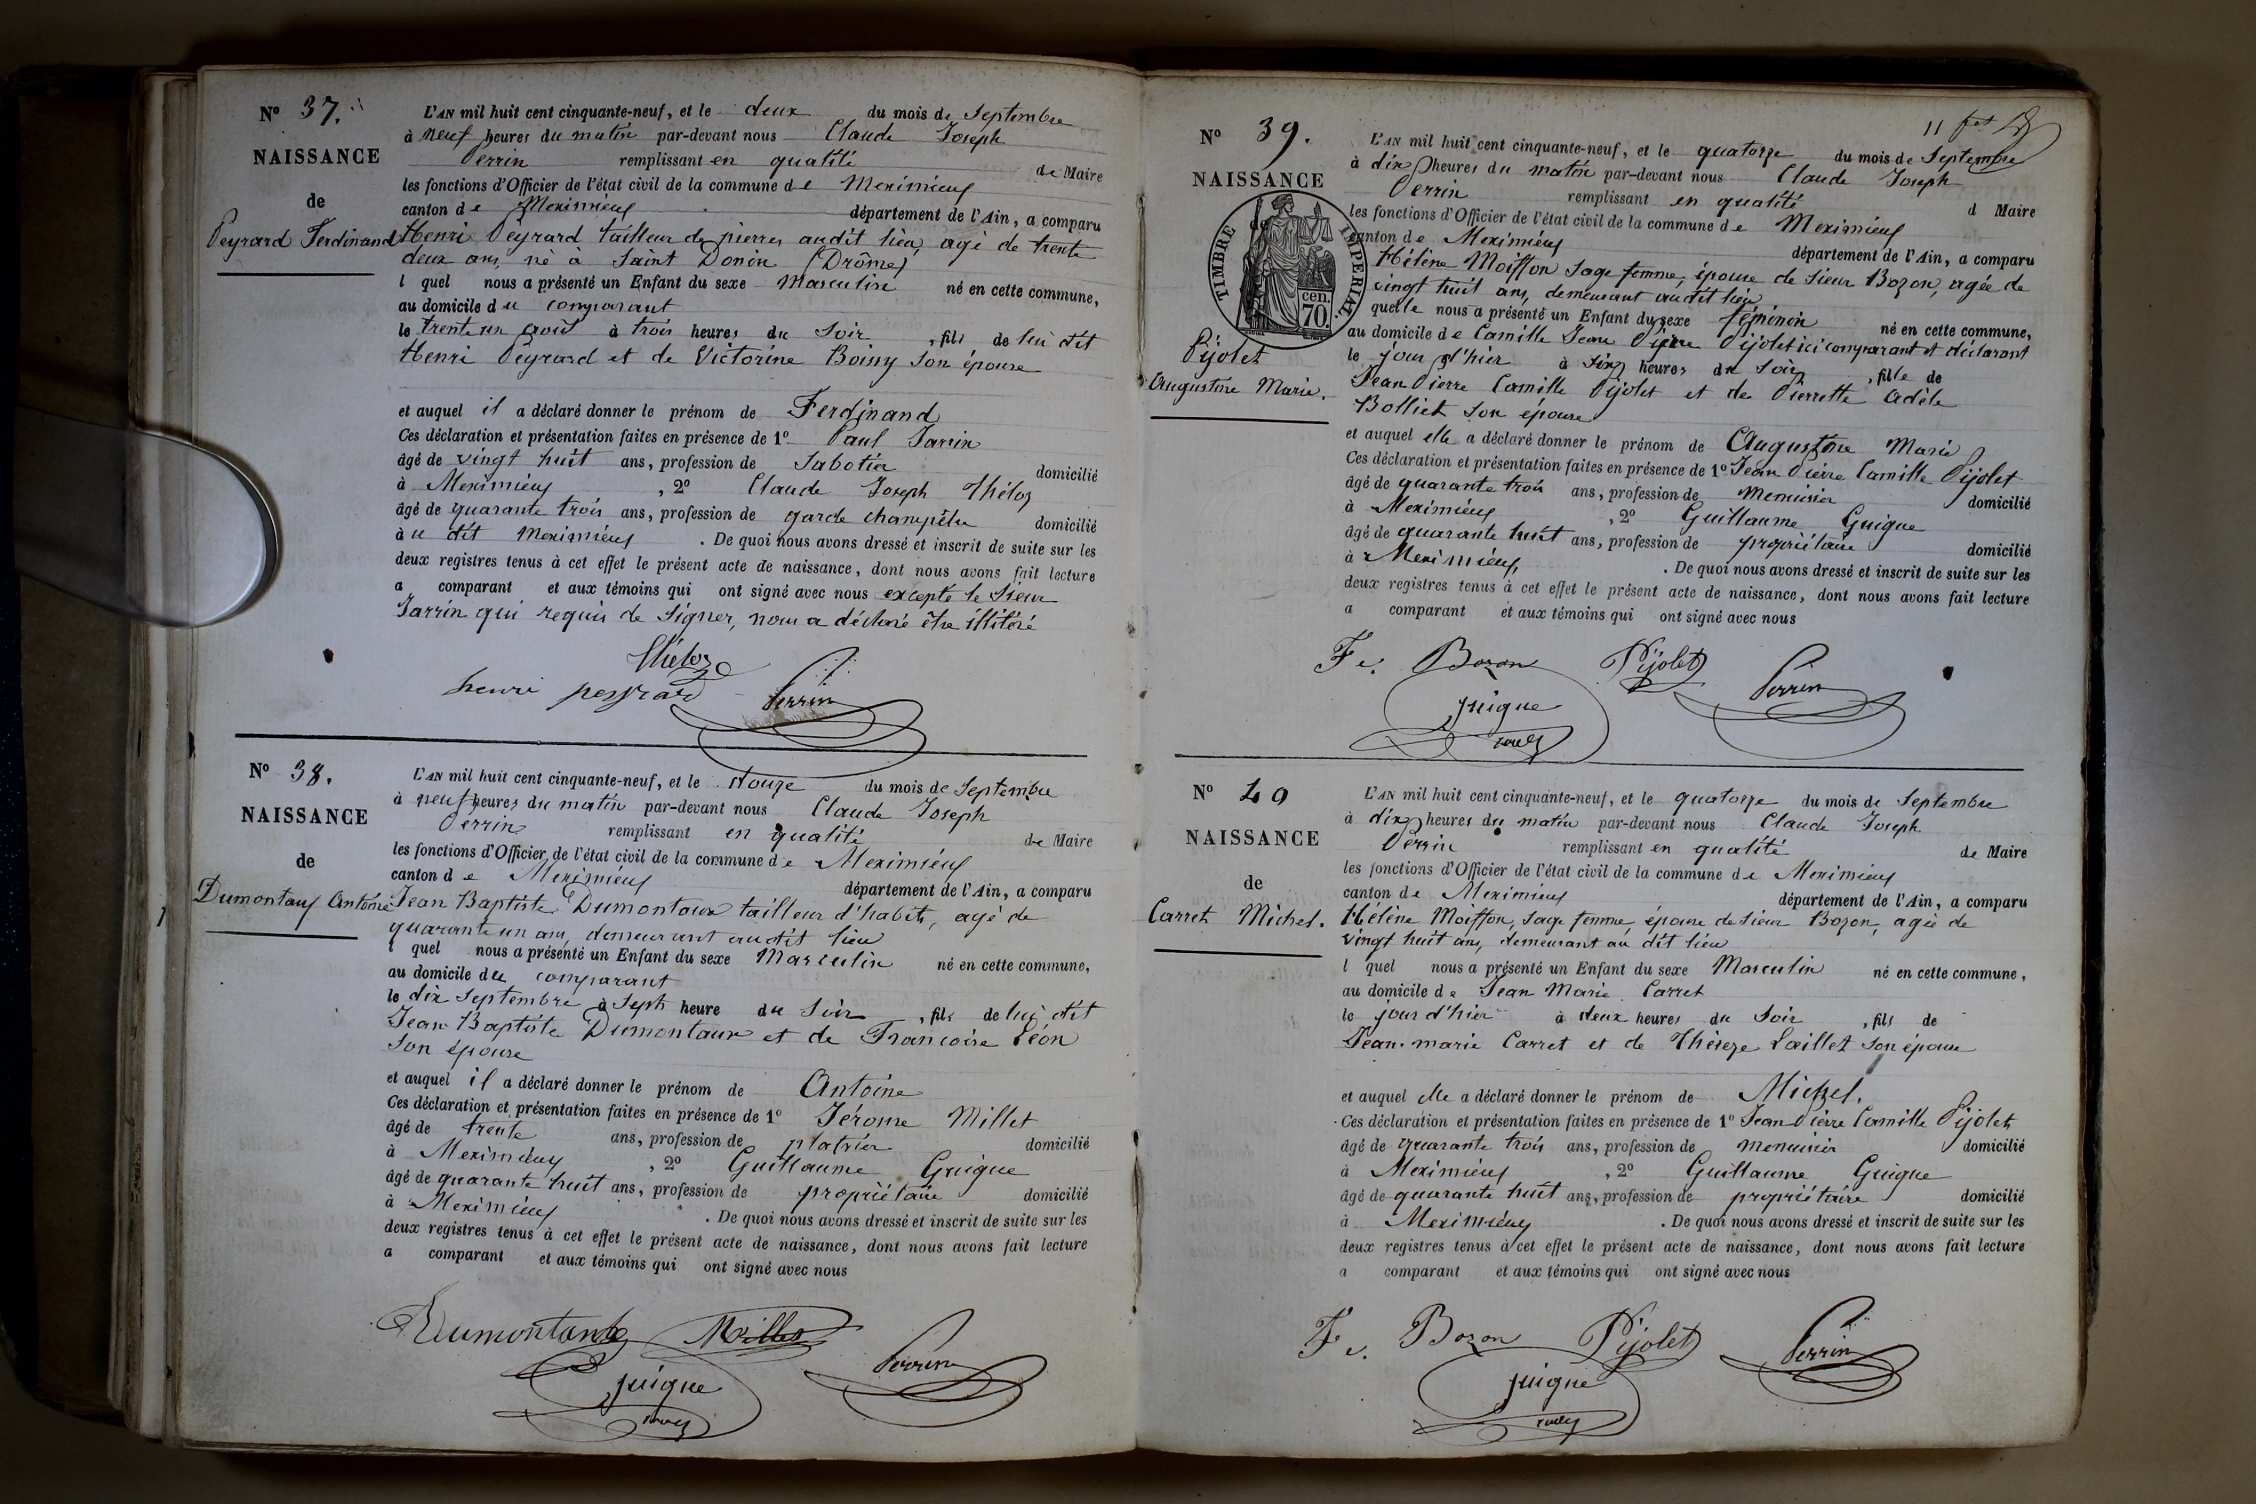 N° 37.
NAISSANCE
de
Peyrard Ferdinand
L'AN mil huit cent cinquante-neuf, et le deux du mois de Septembre
à neuf heures du matin par-devant nous Claude Joseph
Perrin remplissant en qualité de Maire
les fonctions d'Officier de l'état civil de la commune de Meximieux
canton de Meximieux département de l'Ain, a comparu
Henri Peyrard tailleur de pierres audit lieu, agé de trente
deux ans, né à Saint Donin (Drôme)
l quel nous a présenté un Enfant du sexe Masculin né en cette commune,
au domicile du comparant
le trente un août à trois heures du Soir, fils de lui dit
Henri Peyrard et de Victorine Boissy son épouse
et auquel il a déclaré donner le prénom de Ferdinand
Ces déclaration et présentation faites en présence de 1° Paul Jarrin
âgé de vingt huit ans, profession de Sabotier domicilié
à Meximieux, 2° Claude Joseph Théloz
âgé de quarante trois ans, profession de garde champêtre domicilié
à u dit Meximieux. De quoi nous avons dressé et inscrit de suite sur les
deux registres tenus à cet effet le présent acte de naissance, dont nous avons fait lecture
a comparant et aux témoins qui ont signé avec nous excepté le Sieur
Jarrin qui requis de signer, nous a déclaré être illitéré
Théloz
henri peyrard Perrin
N° 38.
NAISSANCE
de
Dumontaux Antoine
L'AN mil huit cent cinquante-neuf, et le douze du mois de Septembre
à neuf heures du matin par-devant nous Claude Joseph
Perrin remplissant en qualité de Maire
les fonctions d'Officier de l'état civil de la commune de Meximieux
canton de Meximieux département de l'Ain, a comparu
Jean Baptiste Dumontaux tailleur d'habits, agé de
quarante un ans, demeurant audit lieu
l quel nous a présenté un Enfant du sexe Masculin né en cette commune,
au domicile du comparant
le dix Septembre à Sept heure du Soir, fils de lui dit
Jean Baptiste Dumontaux et de Francoise Léon
son épouse
et auquel il a déclaré donner le prénom de Antoine
Ces déclaration et présentation faites en présence de 1° Jérome Millet
âgé de trente ans, profession de platrier domicilié
à Meximieux, 2° Guillaume Guigue
âgé de quarante huit ans, profession de propriétaire domicilié
à Meximieux. De quoi nous avons dressé et inscrit de suite sur les
deux registres tenus à cet effet le présent acte de naissance, dont nous avons fait lecture
a comparant et aux témoins qui ont signé avec nous
Dumontaux Millet
guigue Perrin
11
N° 39.
NAISSANCE
de
TIMBRE IMPERIAL
70 cen.
Pijolet
Augustine Marie.
L'AN mil huit cent cinquante-neuf, et le quatorze du mois de Septembre
à dix heures du matin par-devant nous Claude Joseph
Perrin remplissant en qualité d Maire
les fonctions d'Officier de l'état civil de la commune de Meximieux
canton de Meximieux département de l'Ain, a comparu
Hélène Moiffon Sage femme, épouse de Sieur Bozon, agée de
vingt huit ans, demeurant audit lieu
quelle nous a présenté un Enfant du sexe féminin né en cette commune,
au domicile de Camille Jean Pierre Pijolet ici comparant et déclarant
le jour d'hier à Six heures du Soir, fille de
Jean Pierre Camille Pijolet et de Pierrette Adèle
Bolliet son épouse
et auquel elle a déclaré donner le prénom de Augustine Marie
Ces déclaration et présentation faites en présence de 1° Jean Pierre Camille Pijolet
âgé de quarante trois ans, profession de menuisier domicilié
à Meximieux, 2° Guillaume Guigue
âgé de quarante huit ans, profession de propriétaire domicilié
à Meximieux. De quoi nous avons dressé et inscrit de suite sur les
deux registres tenus à cet effet le présent acte de naissance, dont nous avons fait lecture
a comparant et aux témoins qui ont signé avec nous
Fe. Bozon Pijolet Perrin
guigue
N° 40
NAISSANCE
de
Carret Michel.
L'AN mil huit cent cinquante-neuf, et le quatorze du mois de Septembre
à dix heures du matin par-devant nous Claude Joseph
Perrin remplissant en qualité de Maire
les fonctions d'Officier de l'état civil de la commune de Meximieux
canton de Meximieux département de l'Ain, a comparu
Hélène Moiffon, Sage femme, épouse de Sieur Bozon, agée de
vingt huit ans, demeurant au dit lieu
l quel nous a présenté un Enfant du sexe Masculin né en cette commune,
au domicile de Jean Marie Carret
le jour d'hier à deux heures du Soir, fils de
Jean-marie Carret et de Thérèze Laillet son épouse
et auquel elle a déclaré donner le prénom de Michel.
Ces déclaration et présentation faites en présence de 1° Jean Pierre Camille Pijolet
âgé de quarante trois ans, profession de menuisier domicilié
à Meximieux, 2° Guillaume Guigue
âgé de quarante huit ans, profession de propriétaire domicilié
à Meximieux. De quoi nous avons dressé et inscrit de suite sur les
deux registres tenus à cet effet le présent acte de naissance, dont nous avons fait lecture
a comparant et aux témoins qui ont signé avec nous
Fe. Bozon Pijolet Perrin
guigue